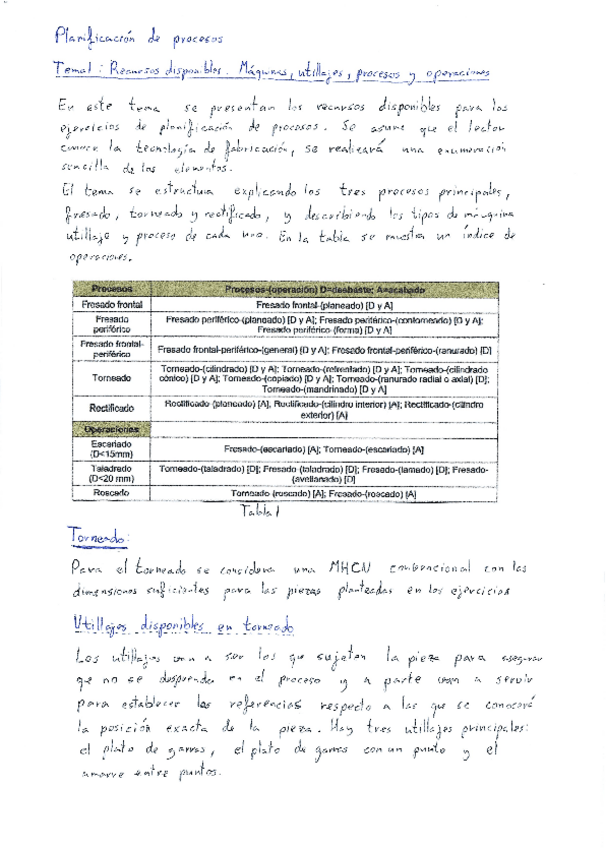 Planificación de procesos
Tema 1: Recursos disponibles. Máquinas, utillajes, procesos y operaciones
En este tema se presentan los recursos disponibles para los
ejercicios de planificación de procesos. Se asume que el lector
conoce la tecnología de fabricación, se realizará una enumeración
sencilla de los elementos.
El tema se estructura explicando los tres procesos principales,
fresado, torneado y rectificado, y describiendo los tipos de máquina
utillaje y proceso de cada uno. En la tabla se muestra un índice de
operaciones.
Procesos Procesos-(operación) D=desbaste; A=acabado
Fresado frontal Fresado frontal-(planeado) [D y A]
Fresado periférico Fresado periférico-(planeado) [D y A]; Fresado periférico-(contorneado) [G y A];
Fresado periférico-(forma) [D y A]
Fresado frontal-periférico Fresado frontal-periférico-(general) [D y A]; Fresado frontal-periférico-(ranurado) [D]
Torneado Torneado-(cilindrado) [D y A]; Torneado-(refrentado) [D y A]; Torneado-(cilindrado
cónico) [D y A]; Torneado-(copiado) [D y A]; Torneado-(ranurado radial o axial) [D];
Torneado-(mandrinado) [D y A]
Rectificado Rectificado-(planeado) [A], Rectificado-(cilindro interior) [A]; Rectificado-(cilindro
exterior) [A]
Operaciones
Escariado (D<15mm) Fresado-(escariado) [A]; Torneado-(escariado) [A]
Taladrado (D<20 mm) Torneado-(taladrado) [D]; Fresado-(taladrado) [D]; Fresado-(lamado) [D]; Fresado-
(avellanado) [D]
Roscado Torneado-(roscado) [A]; Fresado-(roscado) [A]
Tabla 1
Torneado:
Para el torneado se considera una MHCN convencional con las
dimensiones suficientes para las piezas planteadas en los ejercicios
Utillajes disponibles en torneado
Los utillajes van a ser los que sujetan la pieza para asegurar
que no se desprenda en el proceso y a parte van a servir
para establecer las referencias respecto a las que se conocerá
la posición exacta de la pieza. Hay tres utillajes principales:
el plato de garras, el plato de garras con un punto y el
amarre entre puntos.